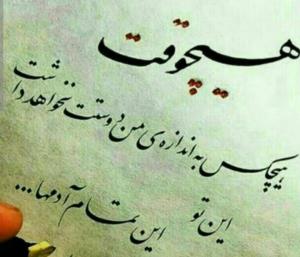 هیچوقت
هیچکس به اندازه ی من دوستت نخواهد داشت
این تو
این تمام آدمها...